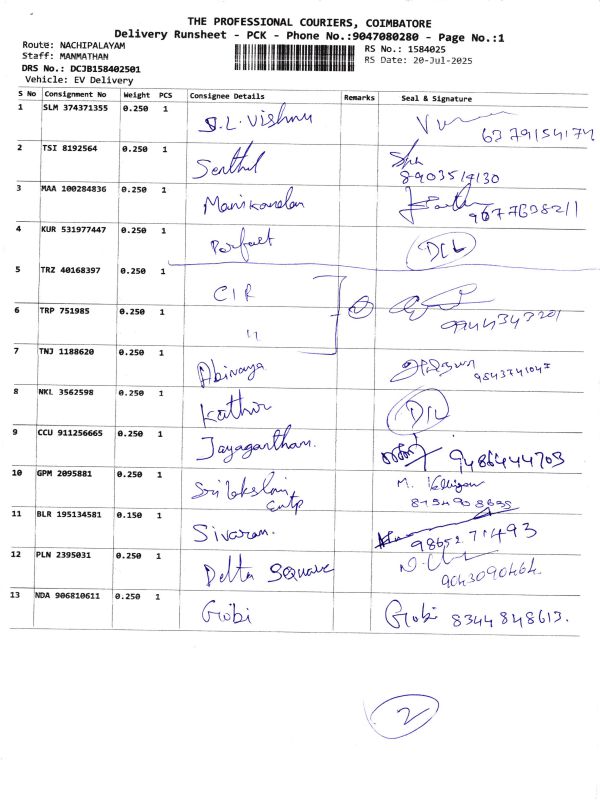 THE PROFESSIONAL COURIERS, COIMBATORE
Delivery Runsheet - PCK - Phone No.:9047080280 - Page No.:1
Route: NACHIPALAYAM
Staff: MANMATHAN
DRS No.: DCJB158402501
Vehicle: EV Delivery
RS No.: 1584025
RS Date: 20-Jul-2025
S No Consignment No Weight PCS Consignee Details Remarks Seal & Signature
1 SLM 374371355 0.250 1 S.L. Vishnu 6379154174
2 TSI 8192564 0.250 1 Senthil
3 MAA 100284836 0.250 1 Manikandan
4 KUR 531977447 0.250 1 Perfect DCL
5 TRZ 40168397 0.250 1 CIR
6 TRP 751985 0.250 1 " 9944343201
7 TNJ 1188620 0.250 1 Abinaya
8 NKL 3562598 0.250 1 Kathir D/L
9 CCU 911256665 0.250 1 Jayagantham. 9486444703
10 GPM 2095881 0.250 1 Sri lakshmi Entp
11 BLR 195134581 0.150 1 Sivaram. 9865271493
12 PLN 2395031 0.250 1 Delta Square 9043090464
13 NDA 906810611 0.250 1 Gobi Gobi 8344848613.
2